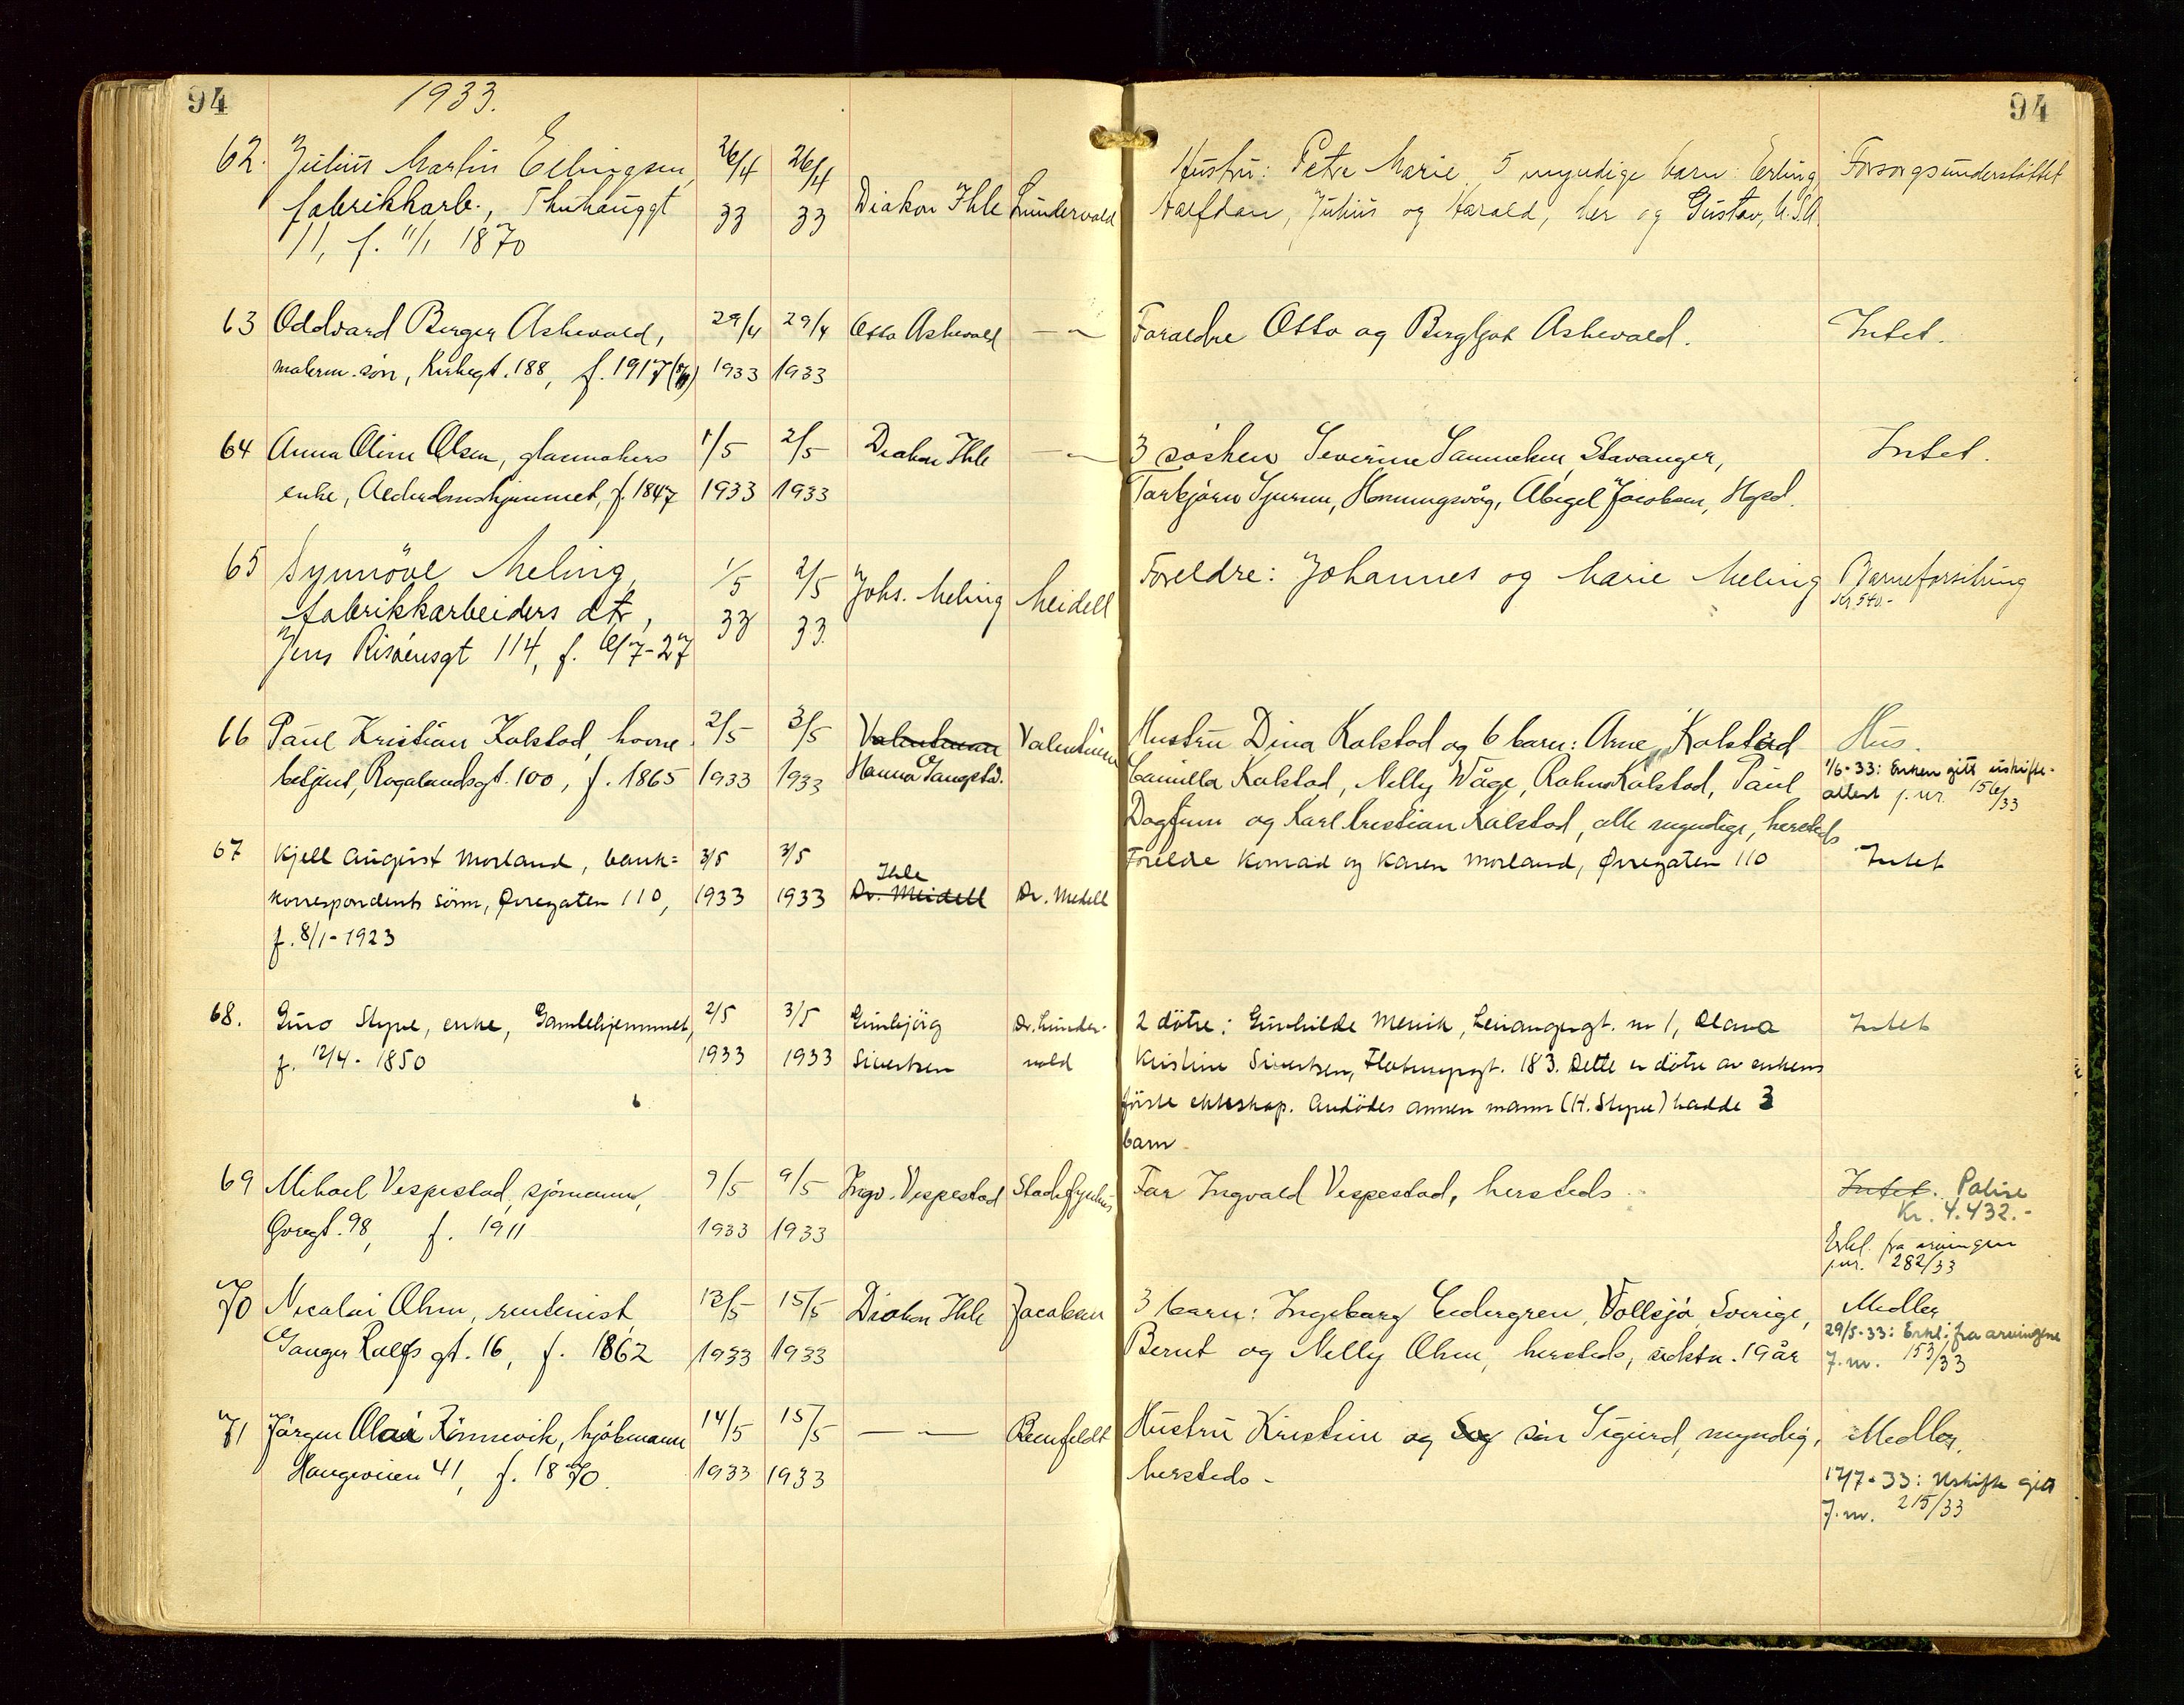 94
1933.
94
62. Julius Martin Ellingsen, 26/4 26/4 Hustru: Petra Marie 5 myndige barn: Erling Forsorgsunderstøttet
fabrikkarb., 33 33 Diakon Ihle Lundervold Halfdan, Julius og Harald, her og Gustav, U.S.A.
11, f. 11/1 1870
63 Oddvard Berger Askevold, 29/4 29/4 Otto Askevold — " — Foraldre Otto og Bergljot Askevold. Intet.
malerm. søn, Kirkegt. 188, f. 1917 1933 1933
64 Anna Oline Olsen, glasmakers 1/5 2/5 Diakon Ihle — " — 3 søsken Severine Stavanger, Intet.
enke, Alderdomshjemmet, f. 1847 1933 1933 Torbjørn Honningsvåg, Abigel Jacobsen, Hgsd.
65 Synnöve Meling, 1/5 2/5 Johs. Meling Meidell Foreldre: Johannes og Marie Meling Barneforsikring
fabrikkarbeiders dtr, 33 33. Kr. 540.-
Jens Risøensgt 114, f. 6/7-27
66 Paul Kristian Kalstad, havne 2/5 3/5 Valentinsen Valentinsen Hustru Dina Kalstad og 6 barn: Arne Kalstad Hus.
betjent, Rogalandsgt. 100, f. 1865 1933 1933 Hanna Camilla Kalstad, Nelly Wåge, Kalstad, Paul 1/6-33: Enken gitt uskifte-
attest j. nr. 156/33
Dagfinn og Karl Kristian Kalstad, alle myndige, hersteds
67 Kjell August Morland, bank= 3/5 3/5 Ihle Forelde Konrad og Karen Morland, Øvregaten 110 Intet
korrespondents sönn, Øvregaten 110, 1933 1933 Dr. Meidell Dr. Medell
f. 8/1-1923
68. Guro Stype, enke, Gamlehjemmet, 2/5 3/5 Gunbjörg Dr. Lunder- 2 dötre: Gunhilde Menik, nr 1, Olava Intet
f. 12/4-1850 1933 1933 Sivertsen vold Kristine Sivertsen, 183. Dette er dötre av enkens
förste ekteskap. Avdödes annen mann (H. Stype) hadde 3
barn.
69 Mikael Vespestad, sjömann, 9/5 9/5 Ingv. Vespestad Stadsfysikus Far Ingvald Vespestad, hersteds. Intet. Polise
Kr. 4.432.-
Øvregt. 98, f. 1911 1933 1933 Erkl. fra arvingen
jnr. 282/33
70 Nicolai Ohm, rentenist, 13/5 15/5 Diakon Ihle Jacobsen 3 barn: Ingeborg Cedergren, Vollsjö, Sverige, Medler
Ganger Rolfs gt. 16, f. 1862 1933 1933 Bernt og Nelly Ohm, hersteds, sidstn. 19 år 29/5-33: Erkl. fra arvingene
J. nr. 153/33
71 Jörgen Olai Rönnevik, kjöbmann 14/5 15/5 — " — Reinfeldt Hustru Kristine og sön Sigurd, myndig, Medler.
Haugeveien 41, f. 1870. 1933 1933 hersteds - 17/7-33: Uskifte gitt
J. nr. 215/33